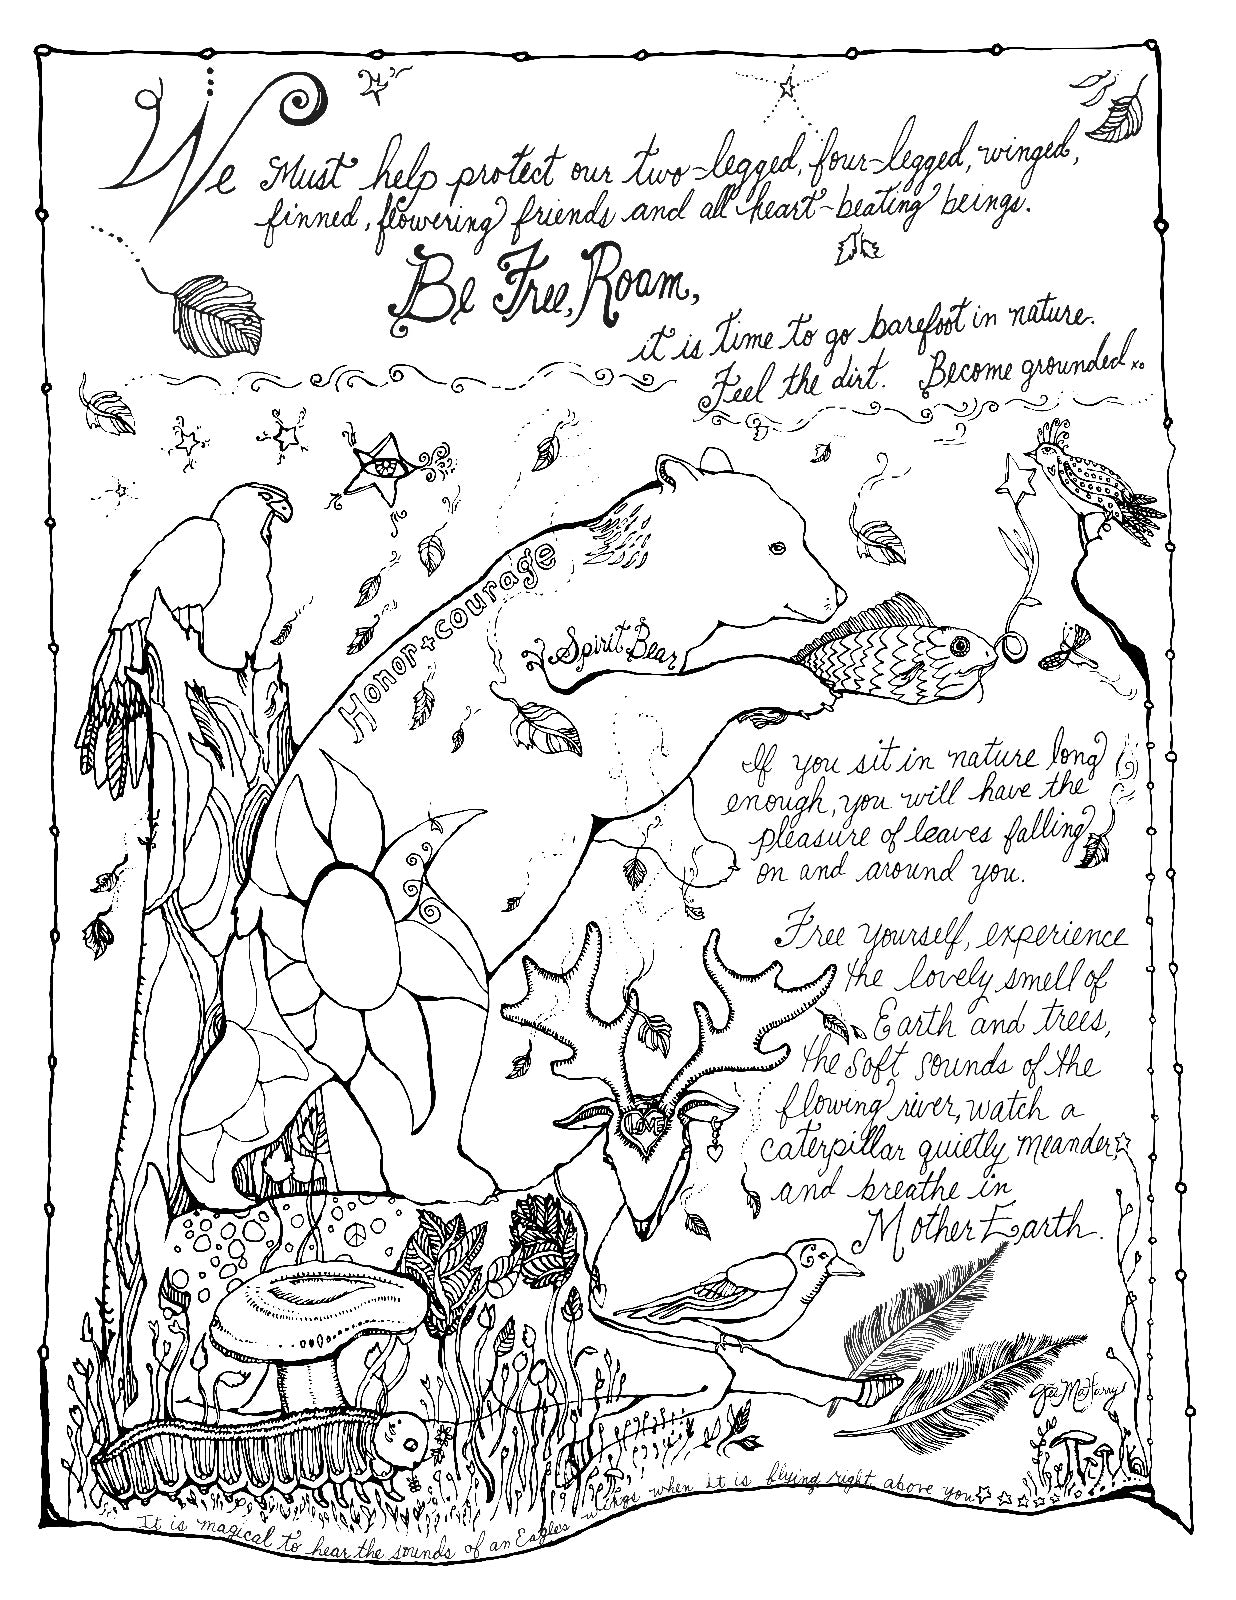 We Must help protect our two-legged, four-legged, winged,
finned, flowering friends and all heart-beating beings.
Be Free, Roam,
it is time to go barefoot in nature.
Feel the dirt. Become grounded.. xo
Honor + courage
Spirit Bear
If you sit in nature long
enough, you will have the
pleasure of leaves falling
on and around you.
Free yourself, experience
the lovely smell of
Earth and trees,
the soft sounds of the
flowing river, watch a
caterpillar quietly meander,
and breathe in
Mother Earth.
LOVE
It is magical to hear the sounds of an Eagles wings when it is flying right above you